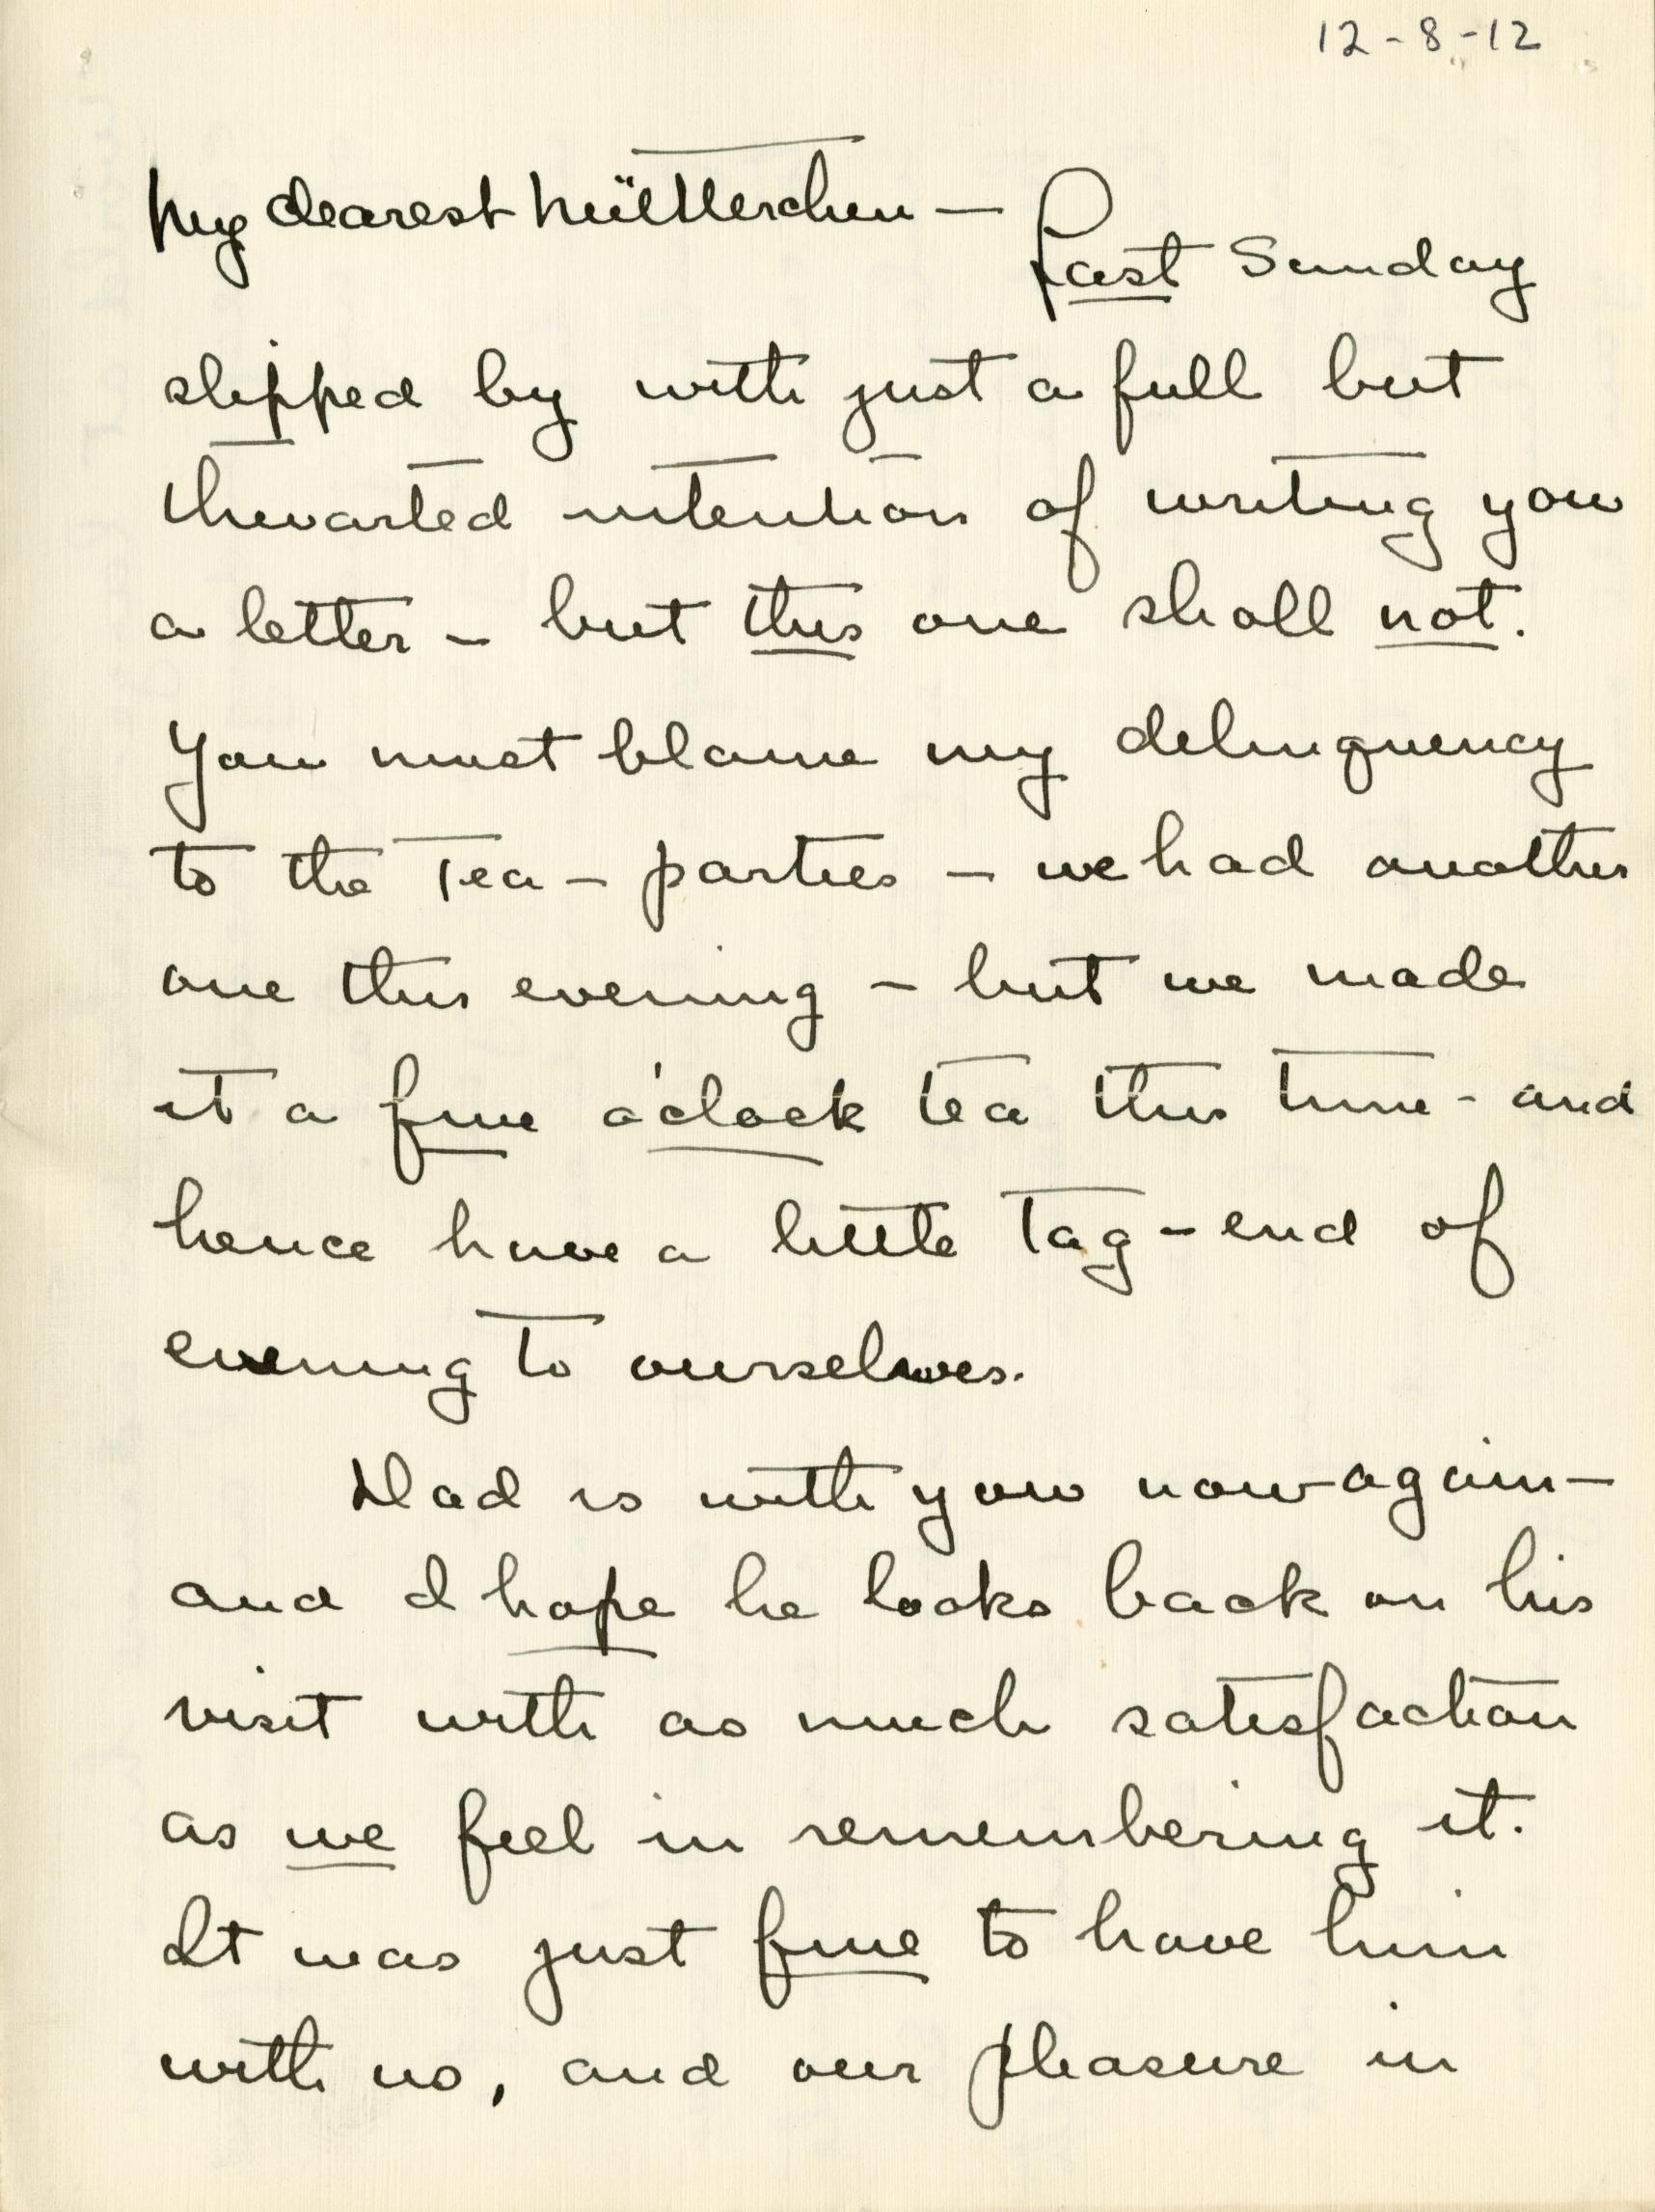 12-8-12
My dearest Mütterchen —
Last Sunday
slipped by with just a full but
thwarted intention of writing you
a letter - but this one shall not.
You must blame my delinquency
to the Tea - parties - we had another
one this evening - but we made
it a five o'clock tea this time - and
hence have a little tag-end of
evening to ourselves.
Dad is with you now again -
and I hope he looks back on his
visit with as much satisfaction
as we feel in remembering it.
It was just fine to have him
with us, and our pleasure in